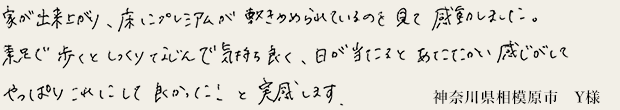 家が出来上がり、床にプレミアムが敷きつめられているのを見て感動しました。
素足で歩くとしっくりなじんで気持ち良く、日が当たるとあたたかい感じがして
やっぱりこれにして良かった!と実感します。
神奈川県相模原市　Y様